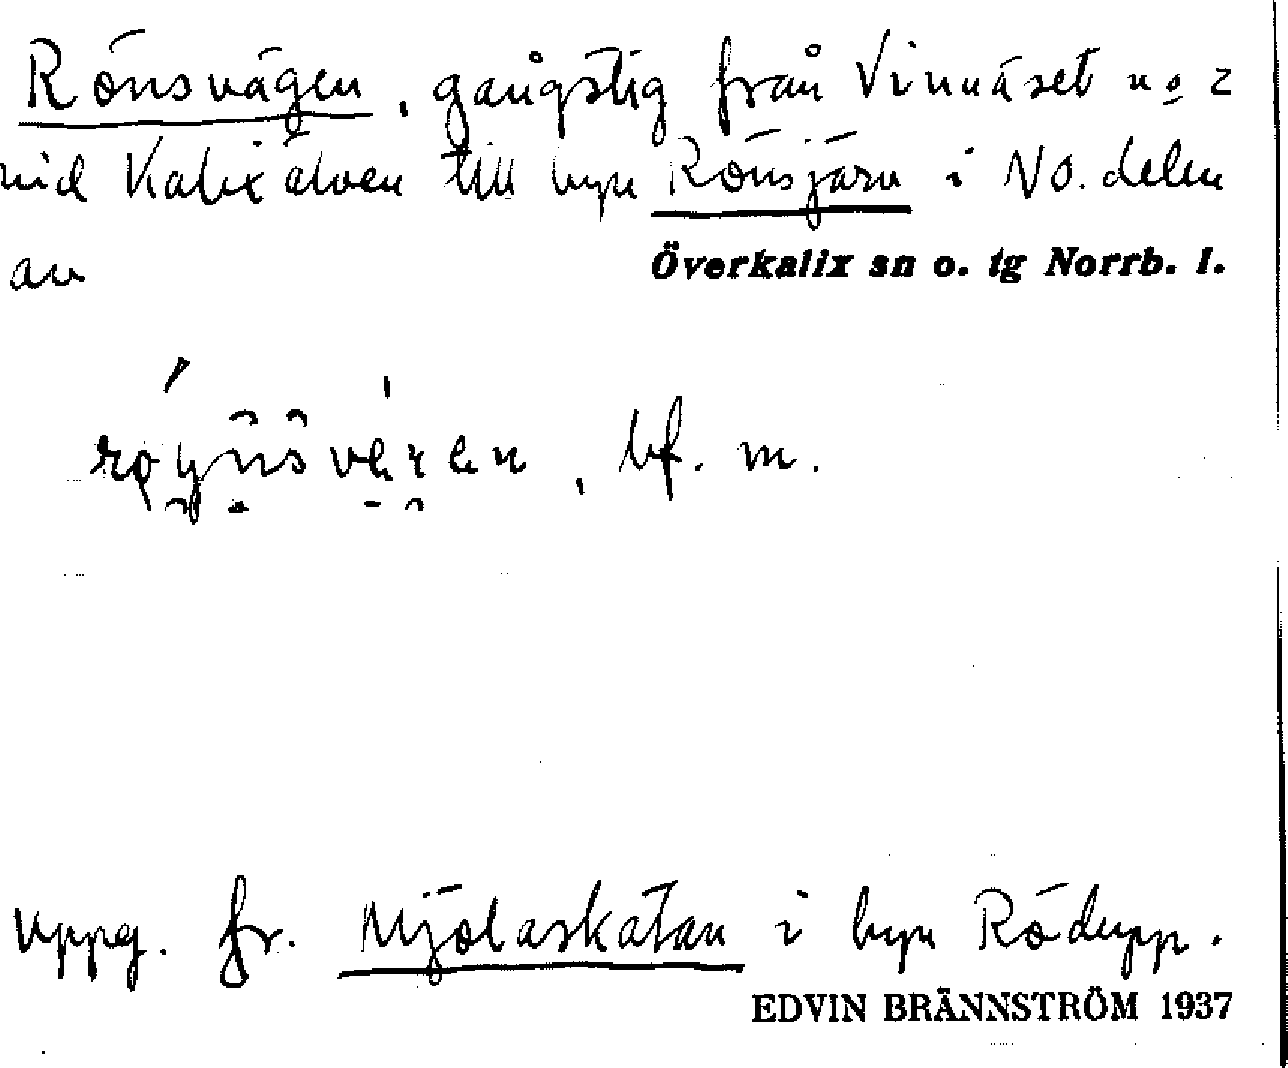 Rönsvägen, gångstig från Vinnäset no 2
vid Kalixälven till byn Rönsjärv i NO. delen
av Överkalix sn o. tg Norrb. l.
bf. m.
Uppg. fr. Mjölaskatan i byn Rödupp.
EDVIN BRÄNNSTRÖM 1937